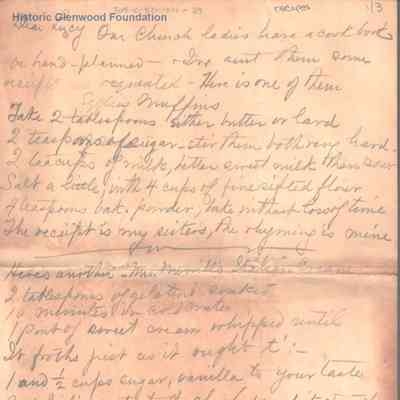 Historic Glenwood Foundation
RECIPES 1/3
Dear Lucy Our Church ladies have a cook book
on hand - planned - I've sent them some
requested - Here is one of them
Muffins
Take 2 tablespoons either butter or lard
2 teaspoons of sugar - stir them both very hard -
2 teacups of milk, better sweet milk than sour
Salt a little, with 4 cups of fine sifted flour
4 teaspoons bak. powder, bake without loss of time
The receipt is my sisters, the rhyming is mine
Here's another - Mrs. Merrill's Cream
2 tablespoons of gelatine soaked
10 minutes in cold water
1 pint of sweet cream whipped until
It froths just as it ought t' :-
1 and ½ cups sugar, vanilla to your taste